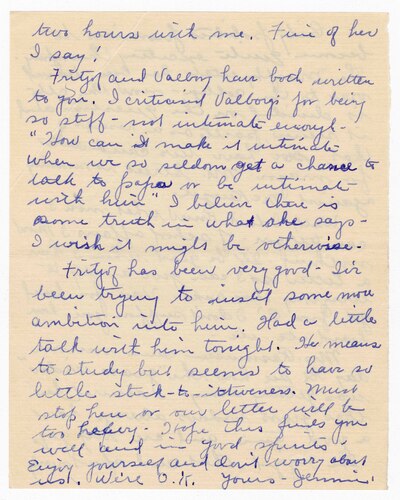 two hours with me. Fine of her
I say!
Fritjof and Valborg have both written
to you. I criticised Valborg's for being
so stiff - not intimate enough -
"How can I make it intimate
when we so seldom get a chance to
talk to papa or be intimate
with him" I believe there is
some truth in what she says -
I wish it might be otherwise.
Fritjof has been very good - I've
been trying to instil some more
ambition into him. Had a little
talk with him tonight. He means
to study but seems to have so
little stick-to-itiveness. Must
stop here or our letter will be
too heavy - Hope this finds you
well and in good spirits.
Enjoy yourself and don't worry about
us. We're O.K. Yours -